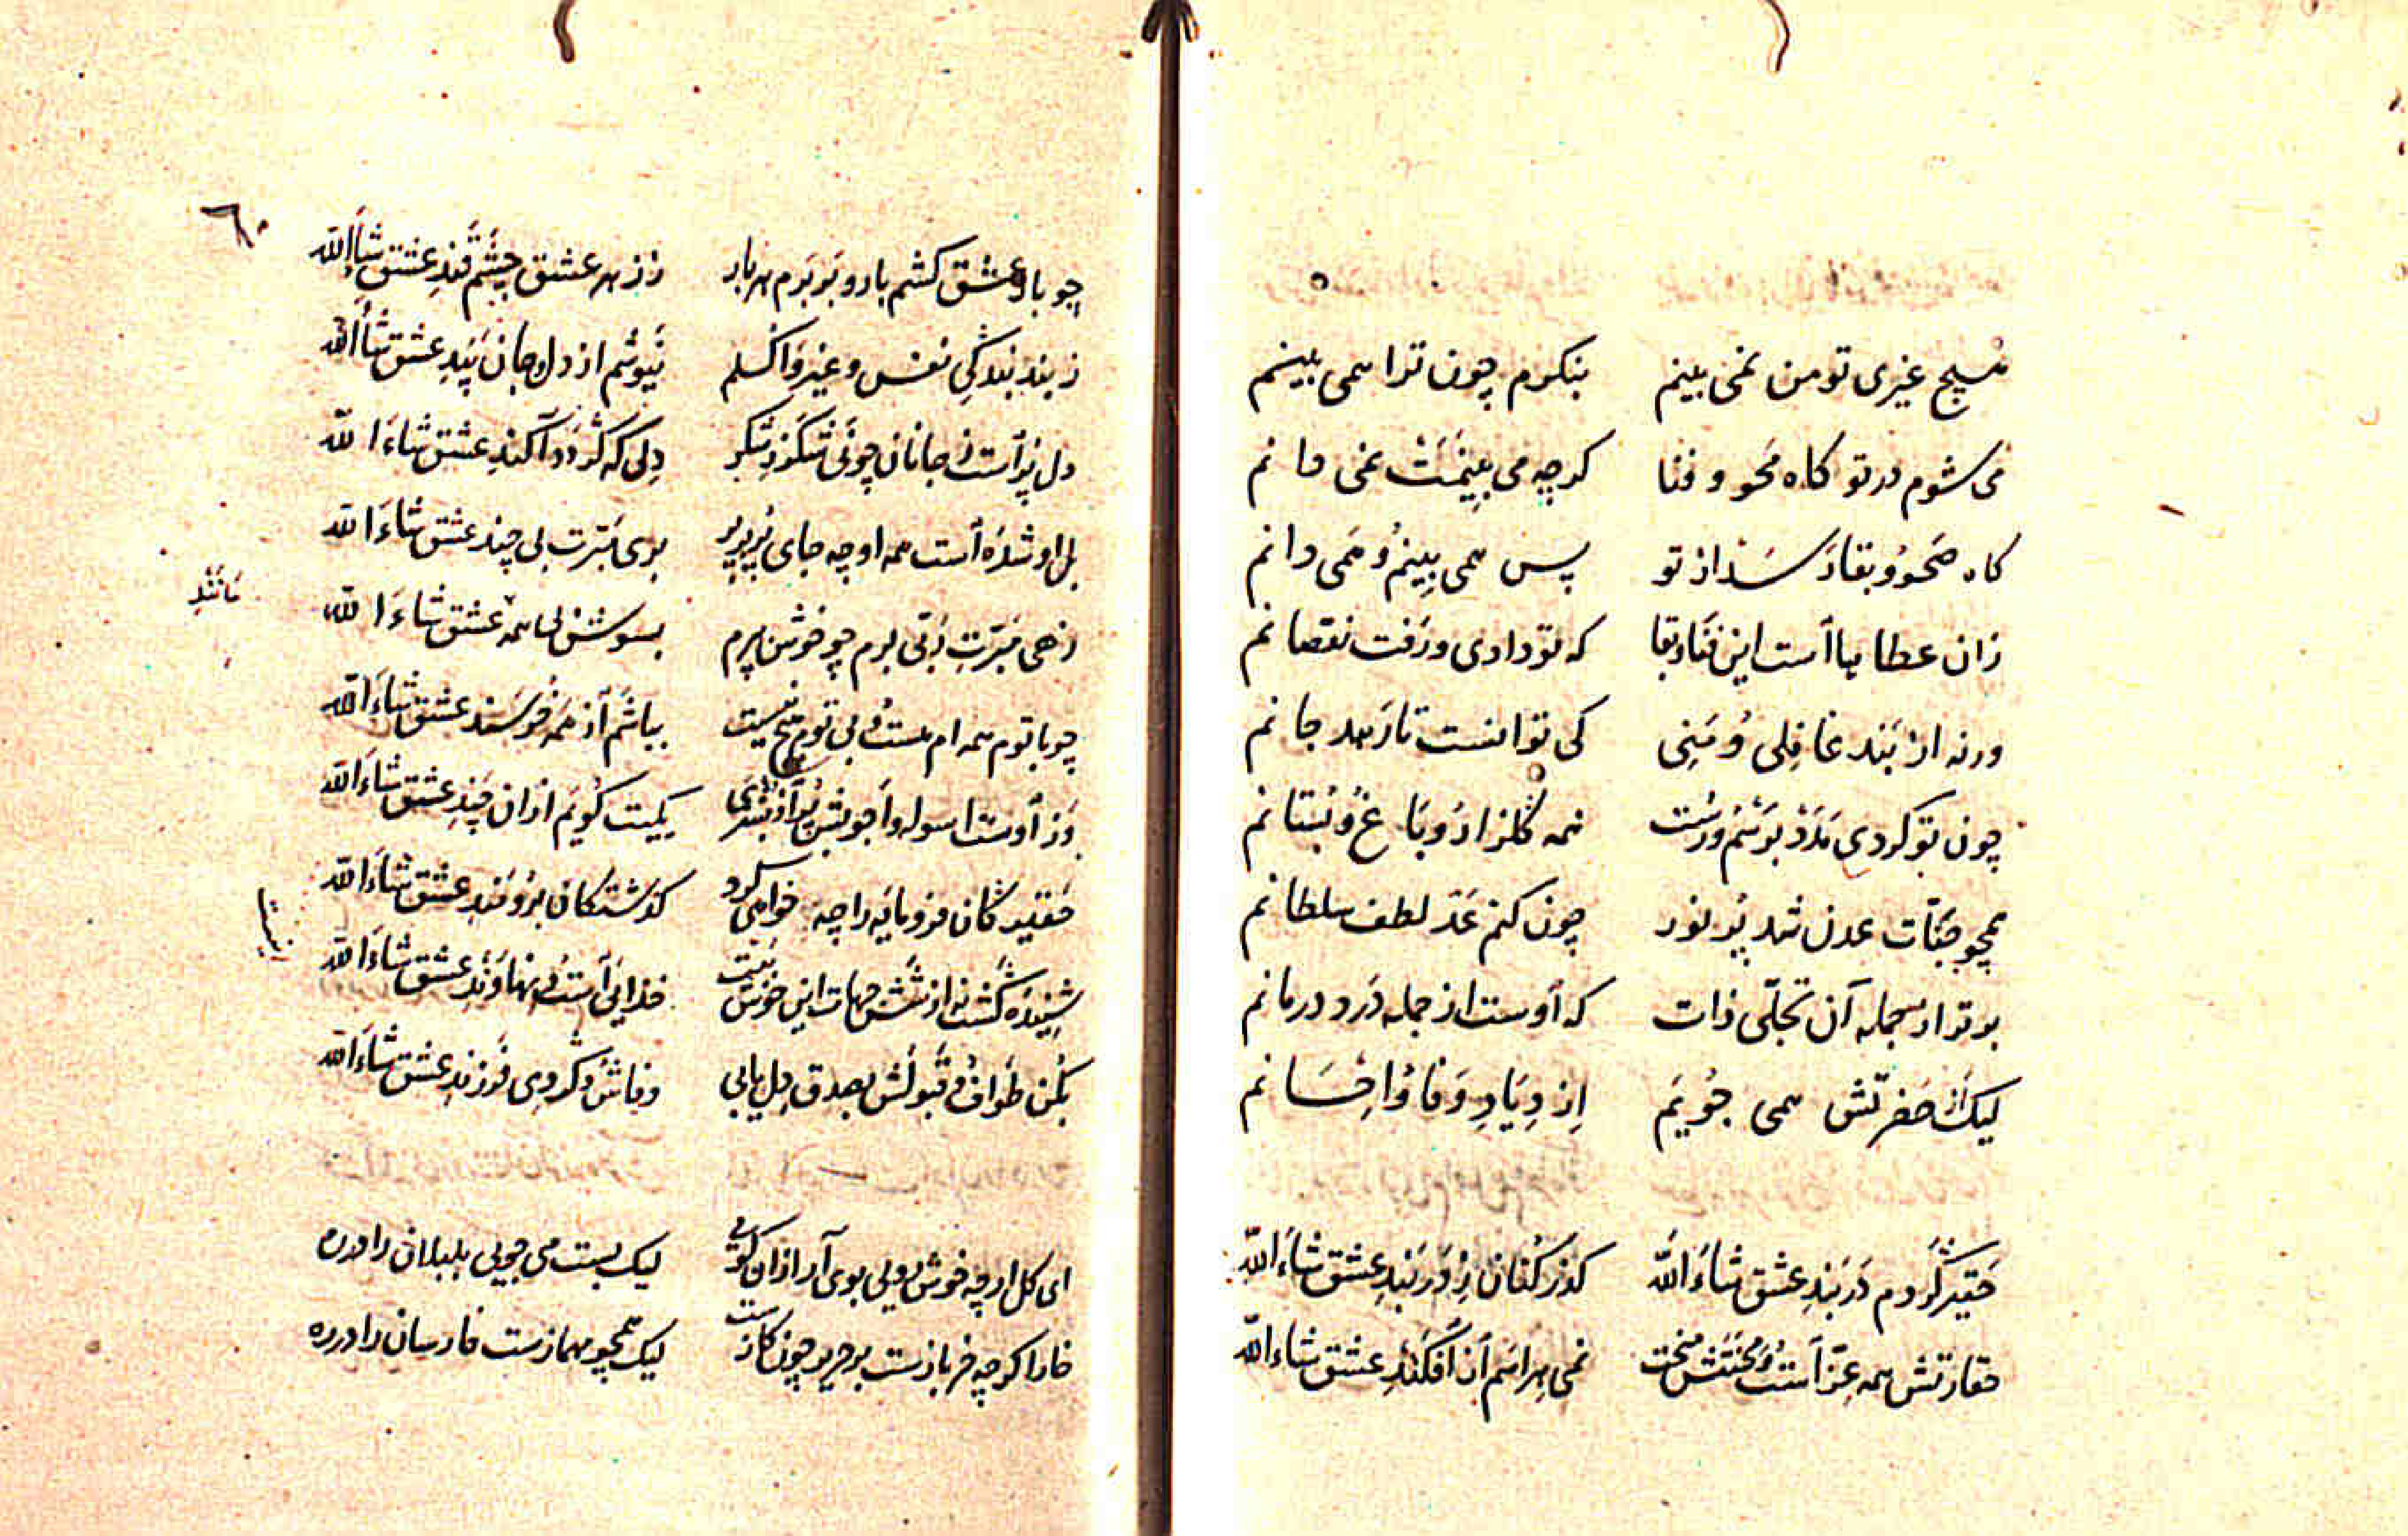 هیچ غیری تو من نمی بینم بنکرم چون ترا همی بینم
می شوم در تو کاه محو و فنا کرچه می بینمت نمی دانم
کاه صحو و بقا رسد از تو پس همی بینم و همی دانم
زان عطایا است این فنا و بقا که تو دادی و رفت نقصانم
ورنه از بند غافلی و منی کی توانست تا رهد جانم
چون تو کردی مدد ورست همه کلزار و باغ و بستانم
همچو جنات عدن شد پر نور چون کنم عد لطف سلطانم
برتر از جمله آن تجلی ذات که اوست از جمله درد درمانم
لیک از حضرتش همی جویم از دیار وفا و احسانم
حقیر کردم در بند عشق شاء الله کذر کنان ز در بند عشق شاء الله
حقارتش همه عز است و محنتش نمی هراسم از افکند عشق شاء الله
٦٠
چو باد عشق کشم بار و بر برم هر بار ز زهر عشق چشم قند عشق شاء الله
ز بند بندکی نفس و غیر واکسلم نیوشم از دل و جان پند عشق شاء الله
دل پر است ز جانان چو نی شکر ز شکر دلی که کرد آکند عشق شاء الله
بل او شده است همه او چه جای بری مبرت بی چند عشق شاء الله
مانند
زهی مبرت پرم بسوش عشق شاء الله
چو با توم همه ام هست و بی توم هیچ نیست بباشم از همه خرسند عشق شاء الله
وز اوست اسوله و اجوبتش یکیت کویم از ان چند عشق شاء الله
حقیر کان فرومایه را چه خواهی کرد کذشتکان برومند عشق شاء الله
شنیده کشت ز از شش جهات این خوش بیت خدایی است و نهاوند عشق شاء الله
بکن طواف و قبولش بصدق دل یابی وفاش کردی فرزند عشق شاء الله
ای کل ارچه خوش رویی بوی آر از ان کوی لیک بست می جویی بلبلان را دره
خار اکرچه بر حریر چون کارست لیک همچو مهمازست فارسان را دره